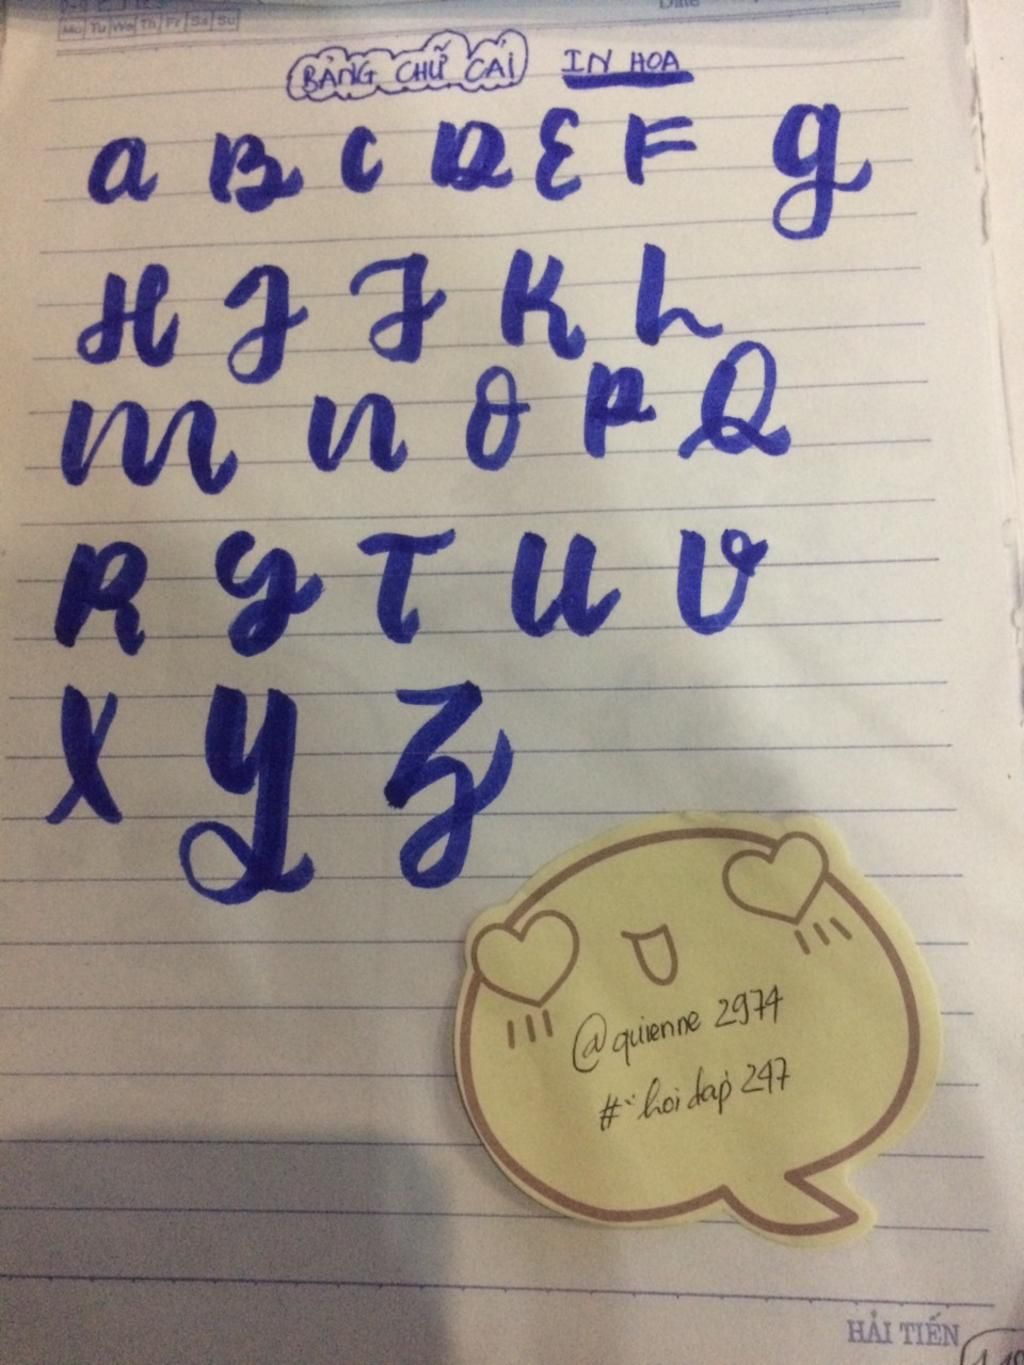 Mo Tu We Th Fr Sa Su
Date
BẢNG CHỮ CÁI IN HOA
a B C D E F g
H I J K L
m n O P Q
R S T U V
X Y Z
@quienne 2974
#hoidap 247
HẢI TIẾN